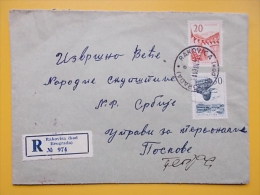 30
RAKOVICA
30
Извршно Веће
Народне Скупштине
Н.Р. Србије
Управи за персоналне
Послове
R
Rakovica (kod
Beograda)
№ 974